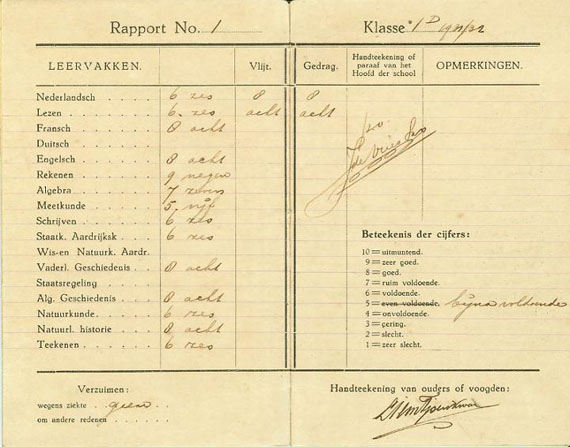 Rapport No. 1 Klasse 1 D 1921/22
LEERVAKKEN. Vlijt. Gedrag. Handteekening of paraaf van het Hoofd der school OPMERKINGEN.
Nederlandsch . . . . . 6 zes 8 8
Lezen . . . . . . . 6. zes acht acht
Fransch . . . . . . 8 acht
Duitsch . . . . . .
Engelsch . . . . . . 8 acht
Rekenen . . . . . . 9 negen
Algebra . . . . . . 7 zeven
Meetkunde . . . . . 5. vijf
Schrijven . . . . . . 6 zes
Staatk. Aardrijksk . . . 6 zes
Wis-en Natuurk. Aardr.
Vaderl. Geschiedenis . . 8 acht
Staatsregeling . . . .
Alg. Geschiedenis . . . 8 acht
Natuurkunde . . . . . 6 zes
Natuurl. historie . . . . 8 acht
Teekenen . . . . . . 6 zes
Beteekenis der cijfers:
10 = uitmuntend.
9 = zeer goed.
8 = goed.
7 = ruim voldoende.
6 = voldoende.
5 = even voldoende. bijna voldoende
4 = onvoldoende.
3 = gering.
2 = slecht.
1 = zeer slecht.
Verzuimen:
wegens ziekte . geen . .
om andere redenen . . . .
Handteekening van ouders of voogden: